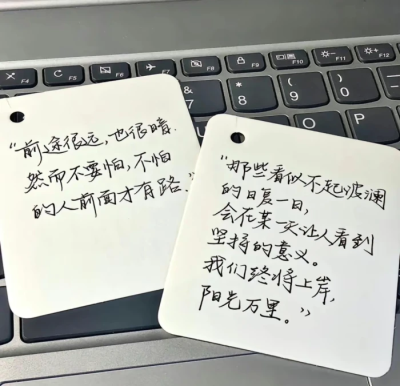 “前途很远,也很暗.
然而不要怕,不怕
的人前面才有路.”
“那些看似不起波澜
的日复一日,
会在某一天让人看到
坚持的意义。
我们终将上岸,
阳光万里。”
F4
F5
F6
F7
F8
F9
F10
F11
F12
&
7
8
9
0